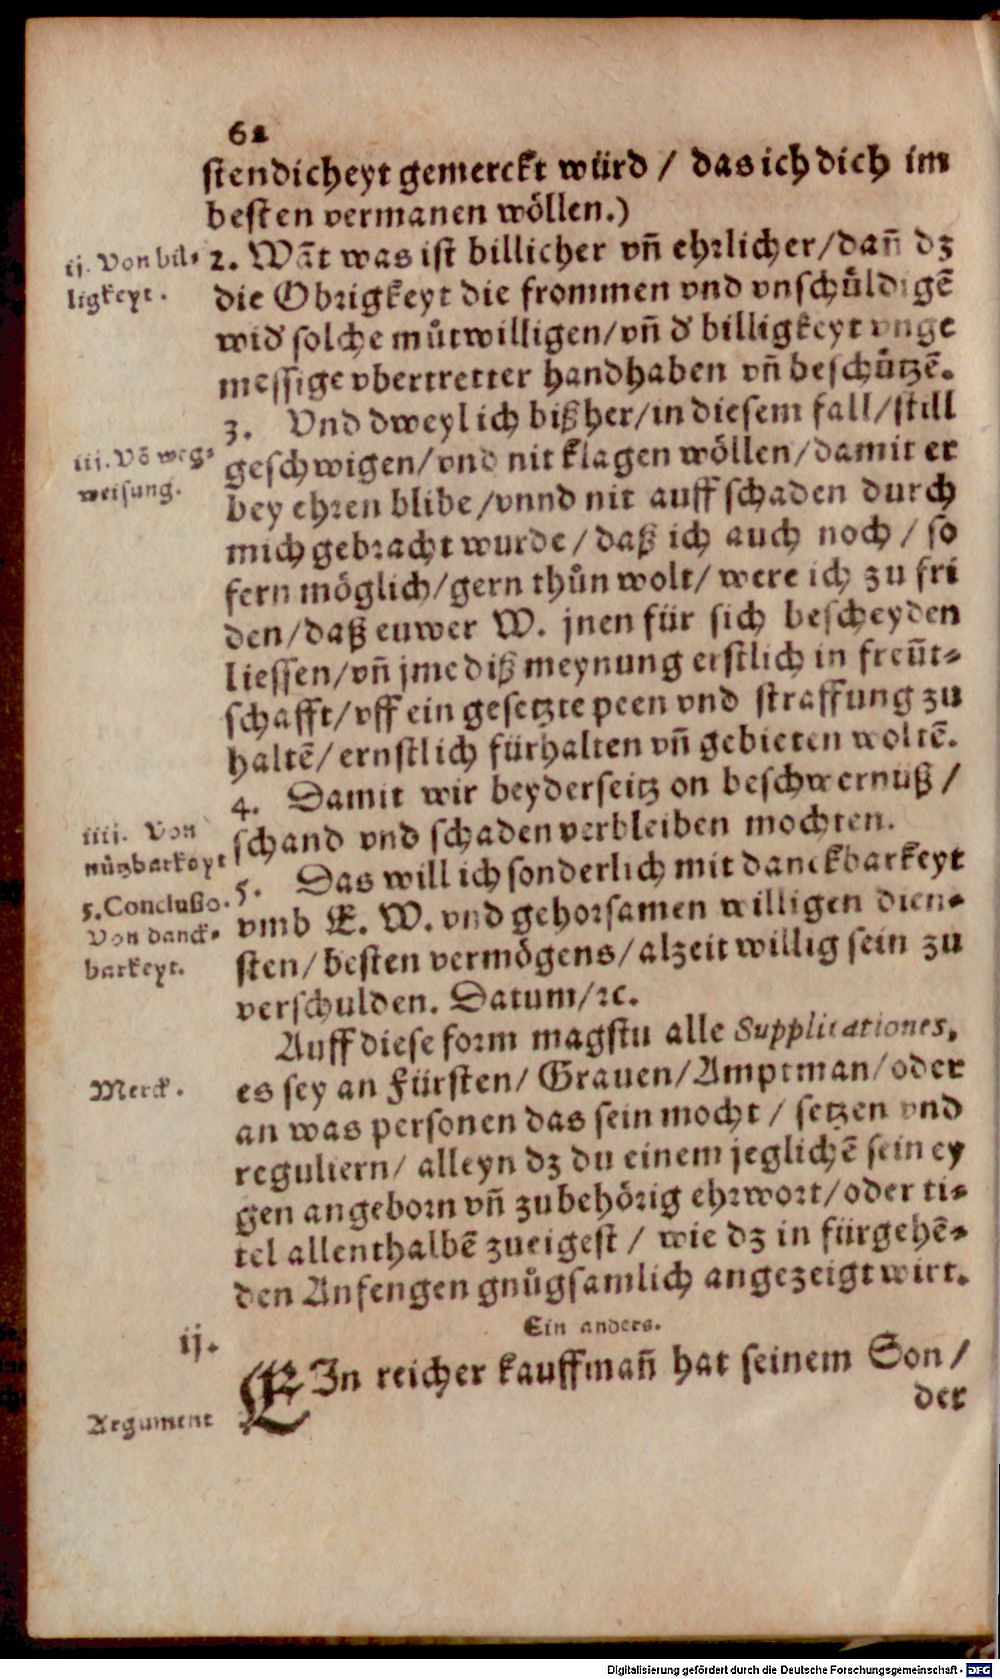 62
stendicheyt gemerckt würd / das ich dich im
besten vermanen wöllen.)
ij. Von bil-
ligkeyt.
2. Wãt was ist billicher vñ ehrlicher/dañ dz
die Obrigkeyt die frommen vnd vnschůldigẽ
wid' solche můtwilligen/vñ d' billigkeyt vnge
messige vbertretter handhaben vñ beschůtzẽ.
iij. Võ weg-
weisung.
3. Vnd dweyl ich bißher/in diesem fall/still
geschwigen/vnd nit klagen wöllen/damit er
bey ehren blibe/vnnd nit auff schaden durch
mich gebracht wurde/daß ich auch noch/so
fern möglich/gern thůn wolt/were ich zu fri
den/daß euwer W. jnen für sich bescheyden
liessen/vñ jme diß meynung erstlich in freũt-
schafft/vff ein gesetzte peen vnd straffung zu
haltẽ/ernstlich fürhalten vñ gebieten woltẽ.
iiij. Von
nützbarkeyt
4. Damit wir beyderseitz on beschwernuß/
schand vnd schaden verbleiben mochten.
5. Conclußo.
Von danck-
barkeyt.
5. Das will ich sonderlich mit danckbarkeyt
vmb E. W. vnd gehorsamen willigen dien-
sten/besten vermögens/alzeit willig sein zu
verschulden. Datum/ꝛc.
Auff diese form magstu alle Supplicationes,
Merck.
es sey an Fürsten/Grauen/Amptman/oder
an was personen das sein mocht/setzen vnd
reguliern/alleyn dz du einem jeglichẽ sein ey
gen angeborn vñ zubehörig ehrwort/oder ti-
tel allenthalbẽ zueigest/wie dz in fürgehẽ-
den Anfengen gnůgsamlich angezeigt wirt.
Ein anders.
ij.
Argument
EIn reicher kauffmañ hat seinem Son/
der
Digitalisierung gefördert durch die Deutsche Forschungsgemeinschaft - DFG